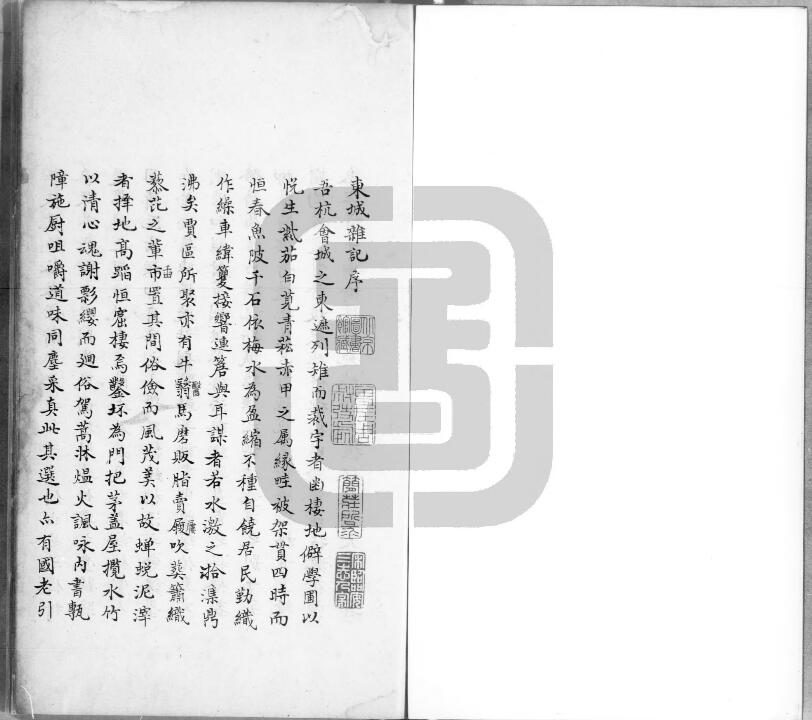 東城雜記序
吾杭會城之東遮列雉而裁宇者幽棲地僻學圃以
悅生紫茄白莧青菘赤甲之属緣畦被架貫四時而
恒春魚陂千石依梅水為盈縮不種自饒居民勤織
作繰車緯籆接響連簷與耳謀者若水激之湁潗鼎
沸矣賈區所聚亦有牛醫馬磨販脂賣履吹簫織
菾芘之輩市置其間俗儉而風茂美以故蟬蛻泥滓
者擇地髙蹈恒窟棲焉鑿坏為門把茅盖屋攬水竹
以清心魂謝影纓而廻俗駕蒿牀煴火諷咏內書甎
障施厨咀嚼道味同塵采真此其選也亦有國老引